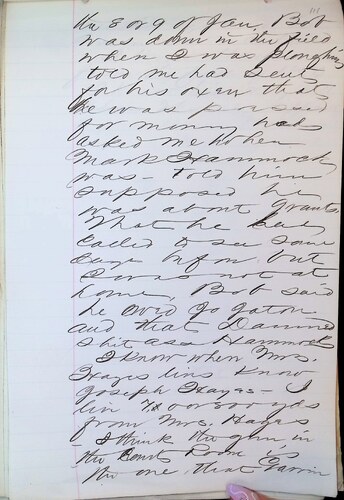 the 8 or 9 of Jan, Bob
was down in the field
when I was ploughing
told me had sent
for his oxen that
he was pressed
for money had
asked me when
Mark Hammock
was - told him
supposed he
was about Grants.
That he had
called to see some
days before but
I was not at
home, Bob said
he
and that Damned
shit ass Hammock
I know when Mrs.
Hayes lives know
Joseph Hayes - I
live or 300 yds
from Mrs. Hayes
I think the gun in
the Court Room is
the one that